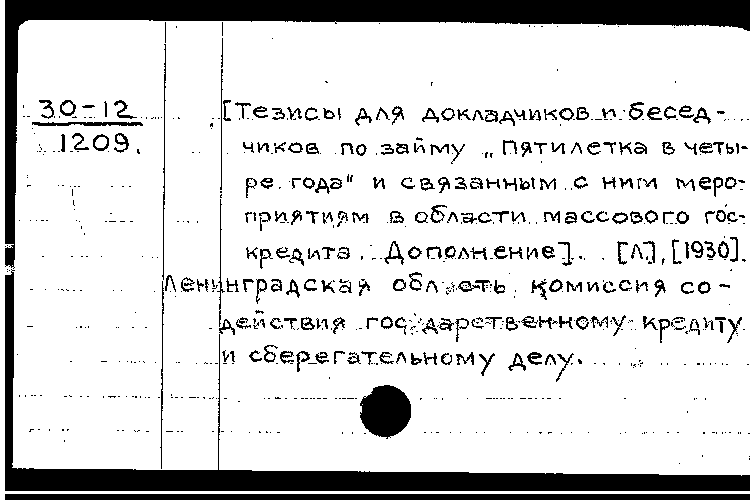 30-12
1209.
[Тезисы для докладчиков и бесед-
чиков по займу „Пятилетка в четы-
ре года" и связанным с ним меро-
приятиям в области массового гос-
кредита. Дополнение]. [Л.], [1930].
Ленинградская область, комиссия со-
действия государственному кредиту
и сберегательному делу.